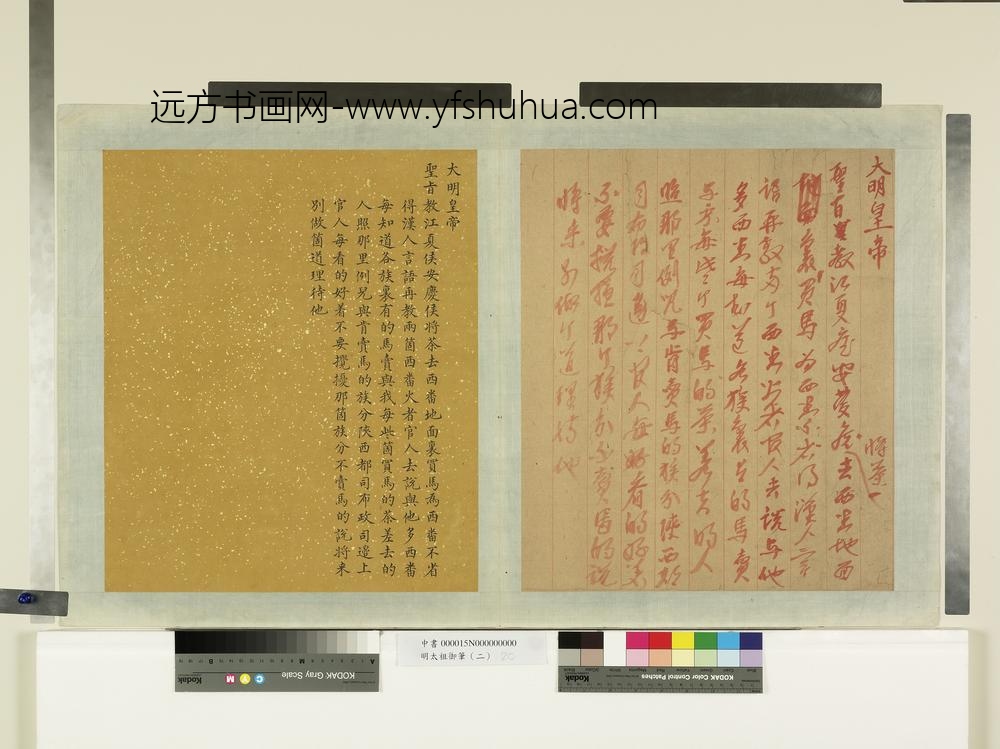 远方书画网-www.yfshuhua.com
大明皇帝
聖旨教江夏侯安慶侯去西番地面
將茶
裏買馬為西番不省得漢人言
語再教两个西番火者官人去說与他
多西番每知道各族裏有的馬賣
与我每些个買馬的茶差去的人
照那里例兒与肯賣馬的族分陝西都
司布政司邉上官人每看的好着
不要攪擾那个族分不賣馬的說
將来別做个道理待他
大明皇帝
聖旨教江夏侯安慶侯将茶去西番地面裏買馬為西番不省
得漢人言語再教兩箇西番火者官人去說與他多西番
每知道各族裏有的馬賣與我每些箇買馬的茶差去的
人照那里例兒與肯賣馬的族分陝西都司布政司邉上
官人每看的好着不要攪擾那箇族分不賣馬的說将来
別做箇道理待他
KODAK Gray Scale
Kodak
C Y M
中書 000015N000000000
明太祖御筆（二） 20
KODAK Color Control Patches
Kodak